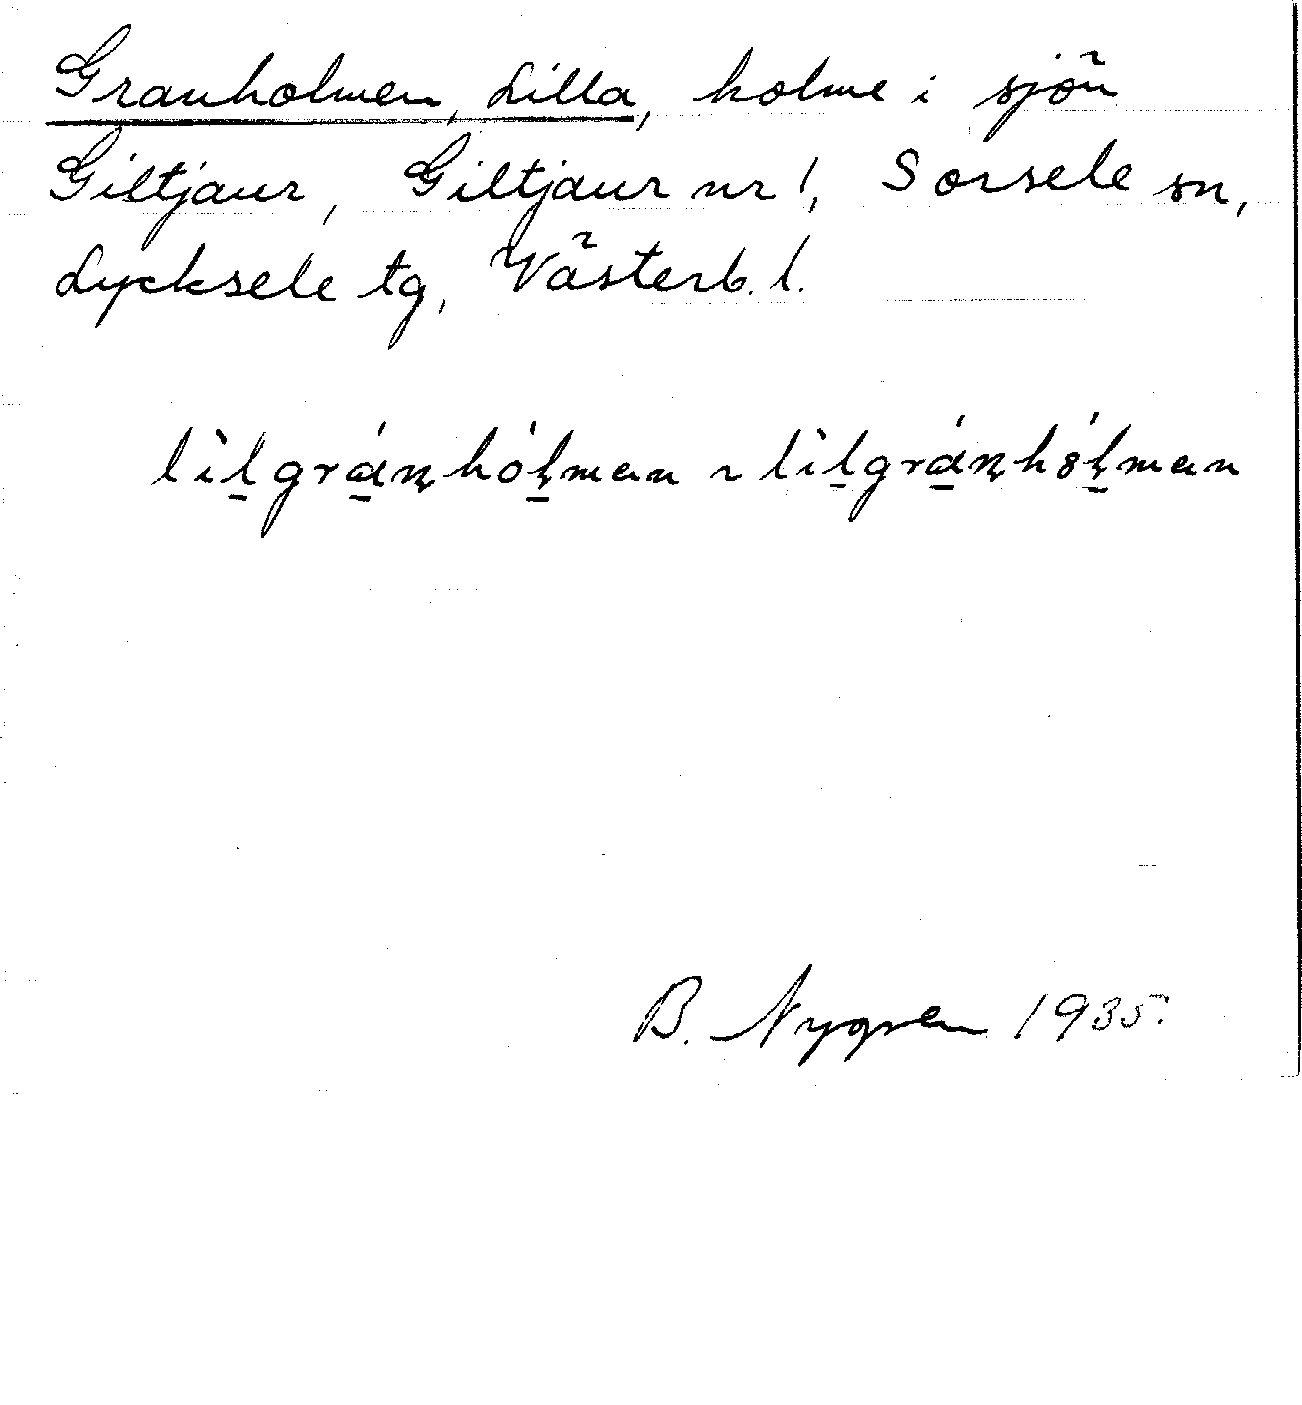 Granholmen, Lilla, holme i sjön
Giltjaur, Giltjaur nr 1, Sorsele sn,
Lycksele tg, Västerb. l.
lìl̠grá̠n̥hól̠̥man ~ lìl̠grá̠n̥hól̠̥man
B. Nygren 1935.